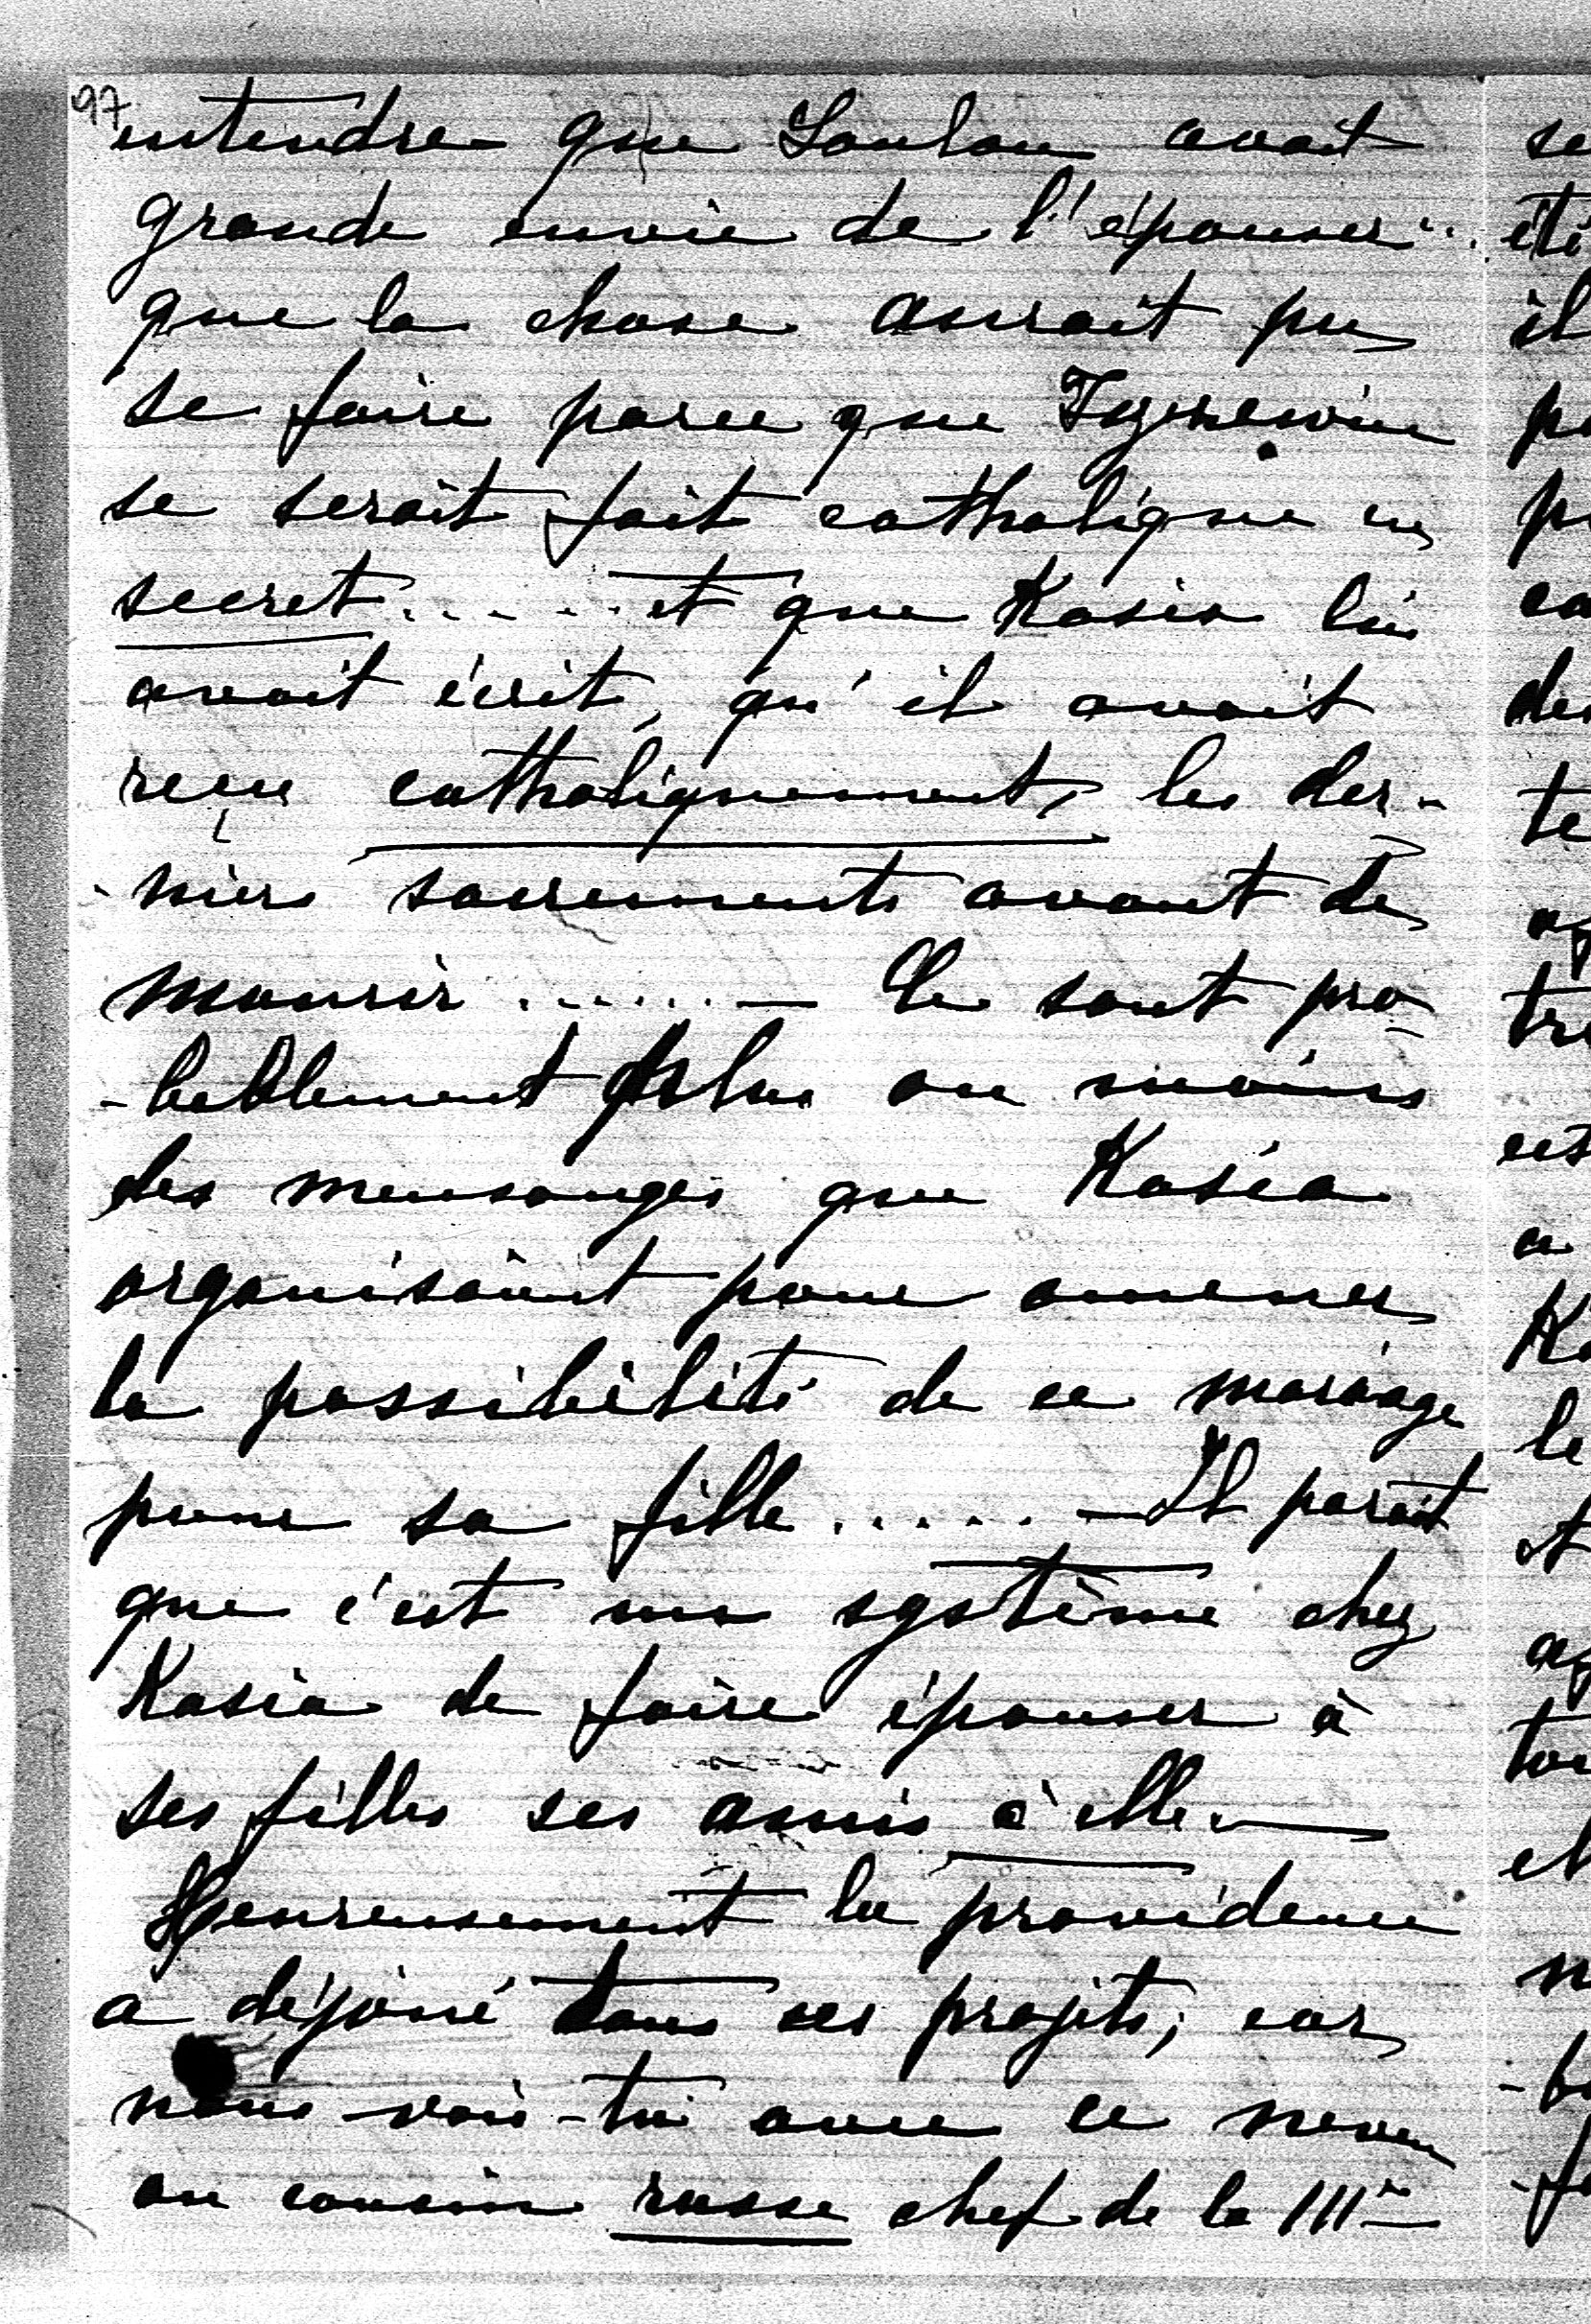 97
entendre que Loulou avait
grande envie de l'épouser...
que la chose aurait pu
se faire parce que
se serait fait catholique en
secret...... et que Kasia lui
avait écrit, qu'il avait
reçu catholiquement, les der-
-niers sacrements avant de
mourir ...... — Ce sont pro
-bablement plus ou moins
des mensonges que Kasia
organisait pour amener
la possibilité de ce mariage
pour sa fille ..... — Il parait
que c'est un système chez
Kasia de faire épouser à
ses filles ses amis à elle. —
Heureusement la providence
a déjoué tous ces projets; car
nous vois-tu avec ce neveu
ou cousin russe chef de la IIIme